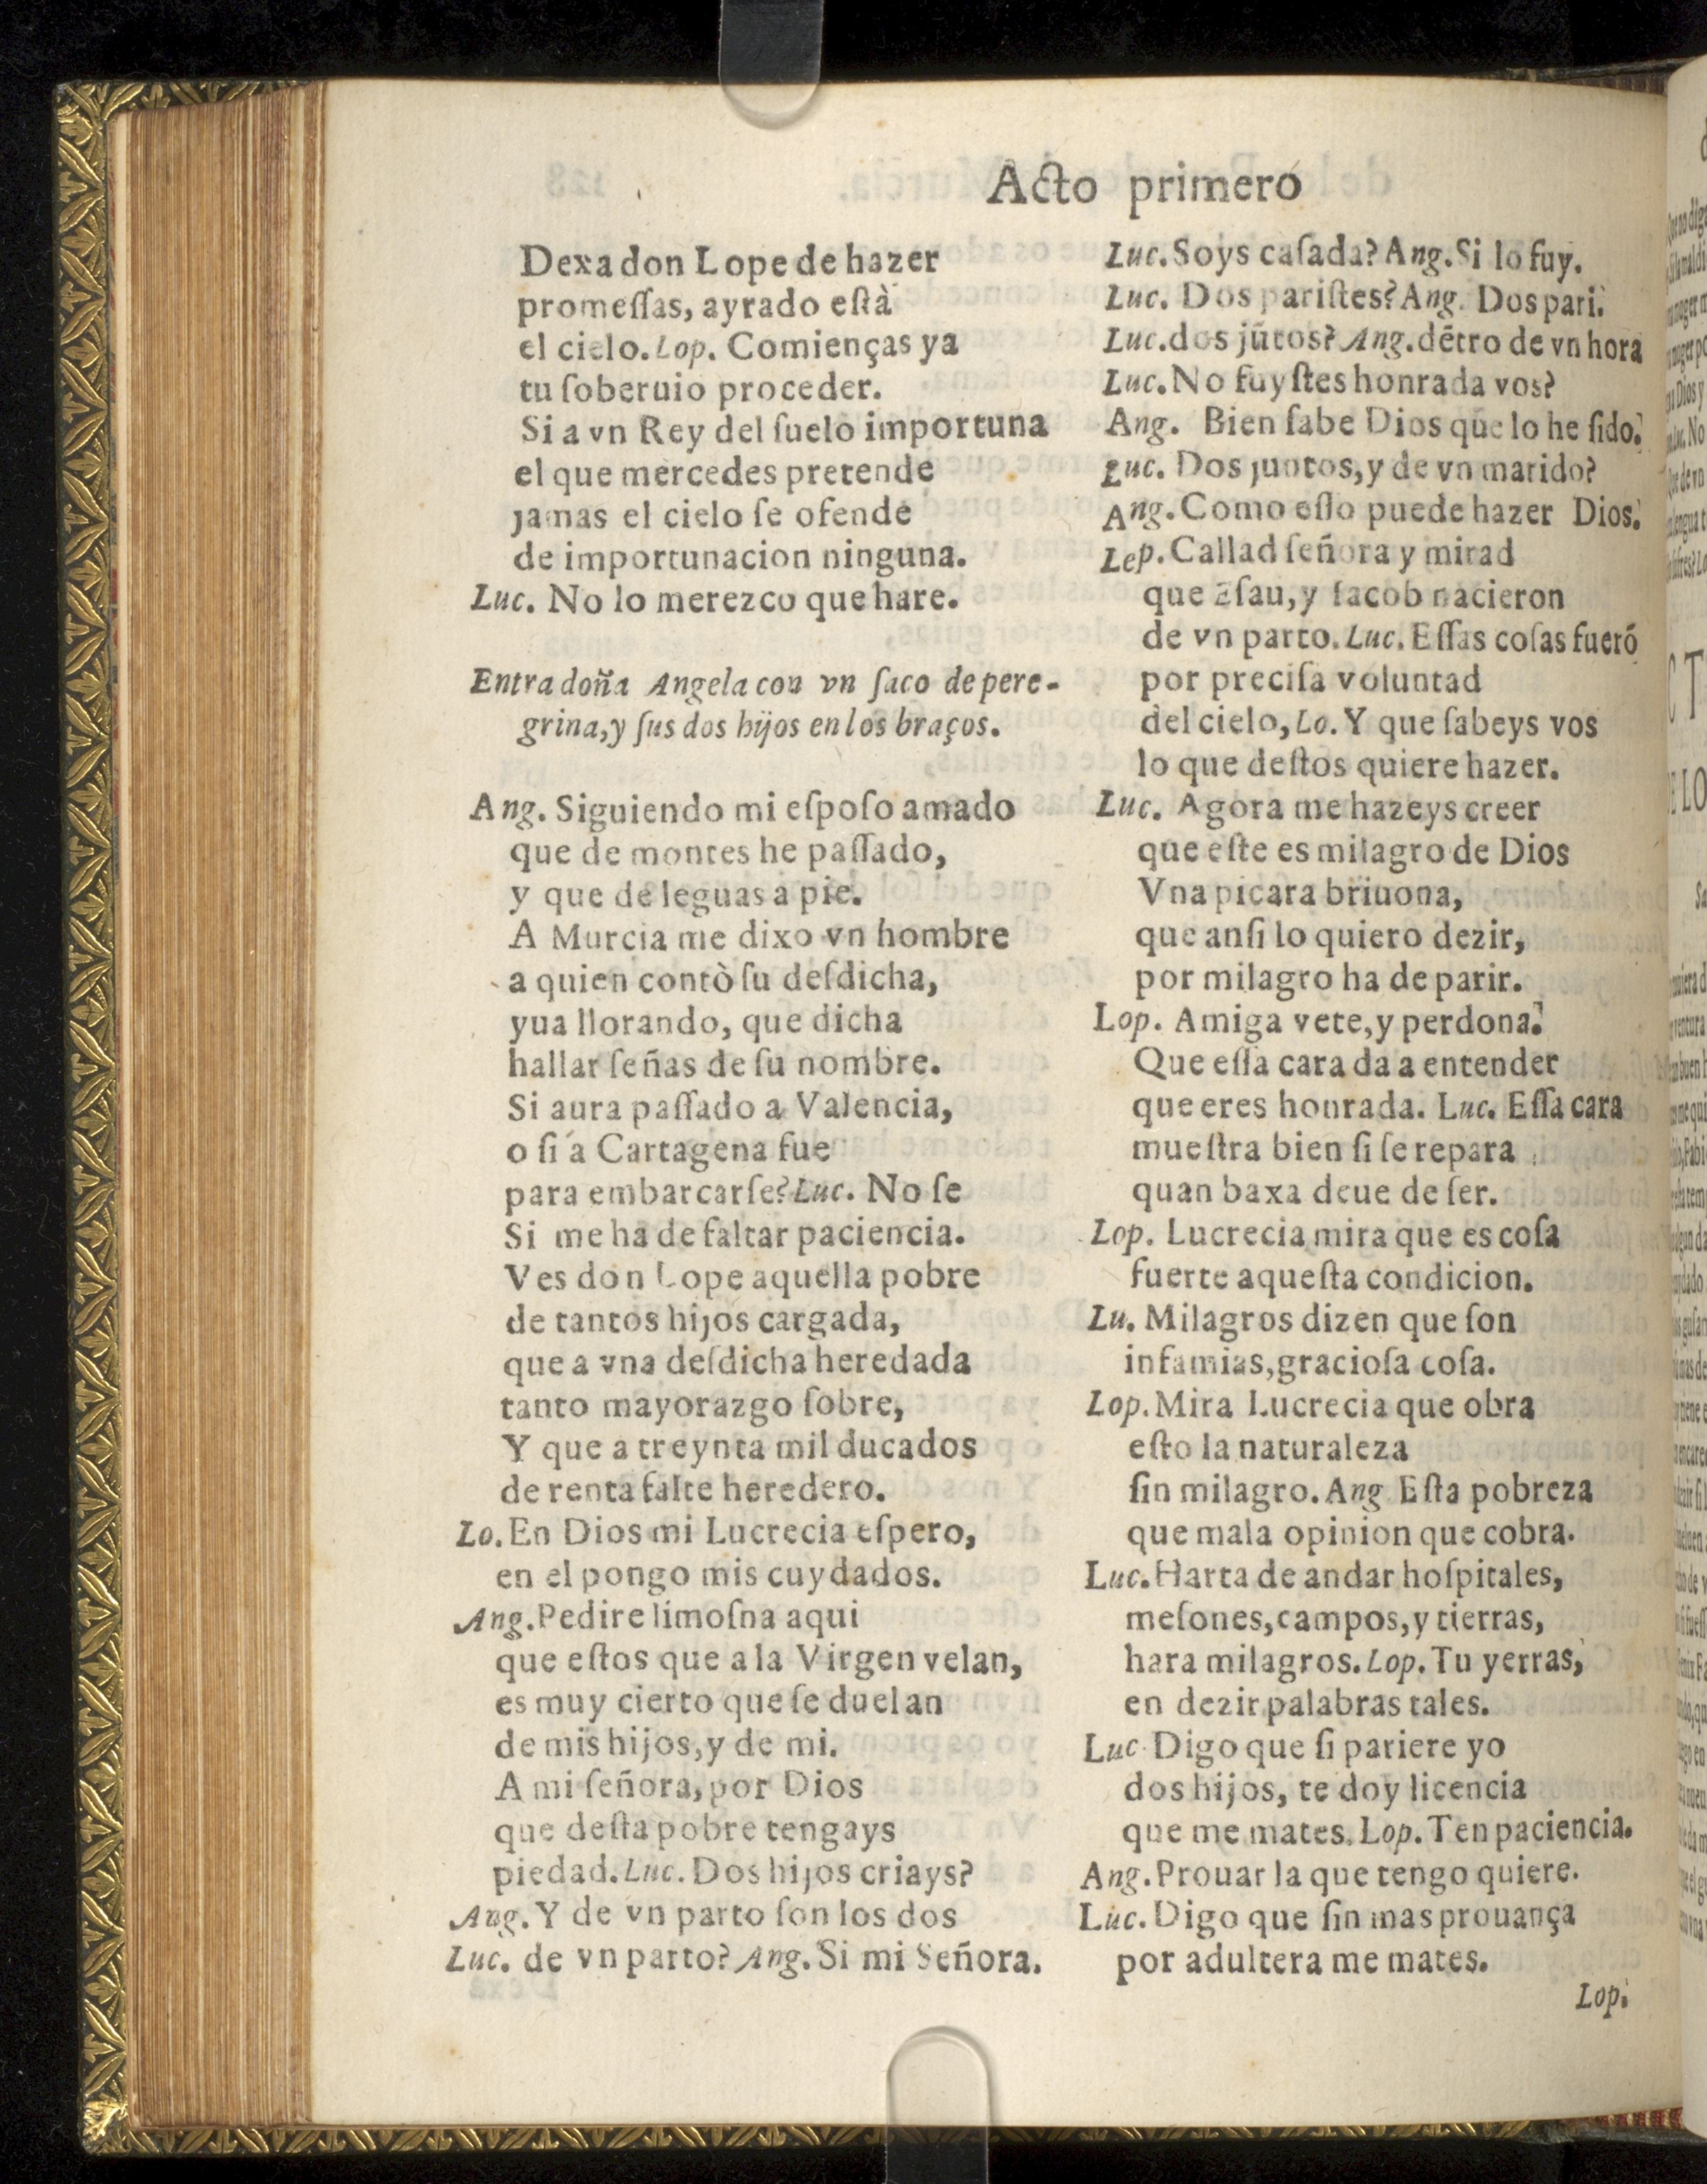 Acto primero
Dexa don Lope de hazer
promeſſas, ayrado eſtà
el cielo. Lop. Comienças ya
tu ſoberuio proceder.
Si a vn Rey del ſuelo importuna
el que mercedes pretende
jamas el cielo ſe ofende
de importunacion ninguna.
Luc. No lo merezco que hare.
Entra doña Angela con vn ſaco de pere-
grina, y ſus dos hijos en los braços.
Ang. Siguiendo mi eſpoſo amado
que de montes he paſſado,
y que de leguas a pie.
A Murcia me dixo vn hombre
a quien contò ſu deſdicha,
yua llorando, que dicha
hallar ſeñas de ſu nombre.
Si aura paſſado a Valencia,
o ſi a Cartagena fue
para embarcarſe? Luc. No ſe
Si me ha de faltar paciencia.
Ves don Lope aquella pobre
de tantos hijos cargada,
que a vna deſdicha heredada
tanto mayorazgo ſobre,
Y que a treynta mil ducados
de renta falte heredero.
Lo. En Dios mi Lucrecia eſpero,
en el pongo mis cuydados.
Ang. Pedire limoſna aqui
que eſtos que a la Virgen velan,
es muy cierto que ſe duelan
de mis hijos, y de mi.
A mi ſeñora, por Dios
que deſta pobre tengays
piedad. Luc. Dos hijos criays?
Ang. Y de vn parto ſon los dos
Luc. de vn parto? Ang. Si mi Señora.
Luc. Soys caſada? Ang. Si lo fuy.
Luc. Dos pariſtes? Ang. Dos pari.
Luc. dos jũtos? Ang. dẽtro de vn hora
Luc. No fuyſtes honrada vos?
Ang. Bien ſabe Dios que lo he ſido.
Luc. Dos juntos, y de vn marido?
Ang. Como eſſo puede hazer Dios.
Lep. Callad ſeñora y mirad
que Eſau, y Iacob nacieron
de vn parto. Luc. Eſſas coſas fueró
por preciſa voluntad
del cielo, Lo. Y que ſabeys vos
lo que deſtos quiere hazer.
Luc. Agora me hazeys creer
que eſte es milagro de Dios
Vna picara briuona,
que anſi lo quiero dezir,
por milagro ha de parir.
Lop. Amiga vete, y perdona.
Que eſſa cara da a entender
que eres honrada. Luc. Eſſa cara
mueſtra bien ſi ſe repara
quan baxa deue de ſer.
Lop. Lucrecia mira que es coſa
fuerte aqueſta condicion.
Lu. Milagros dizen que ſon
infamias, gracioſa coſa.
Lop. Mira Lucrecia que obra
eſto la naturaleza
ſin milagro. Ang Eſta pobreza
que mala opinion que cobra.
Luc. Harta de andar hoſpitales,
meſones, campos, y tierras,
hara milagros. Lop. Tu yerras,
en dezir palabras tales.
Luc Digo que ſi pariere yo
dos hijos, te doy licencia
que me mates. Lop. Ten paciencia.
Ang. Prouar la que tengo quiere.
Luc. Digo que ſin mas prouança
por adultera me mates.
Lop.